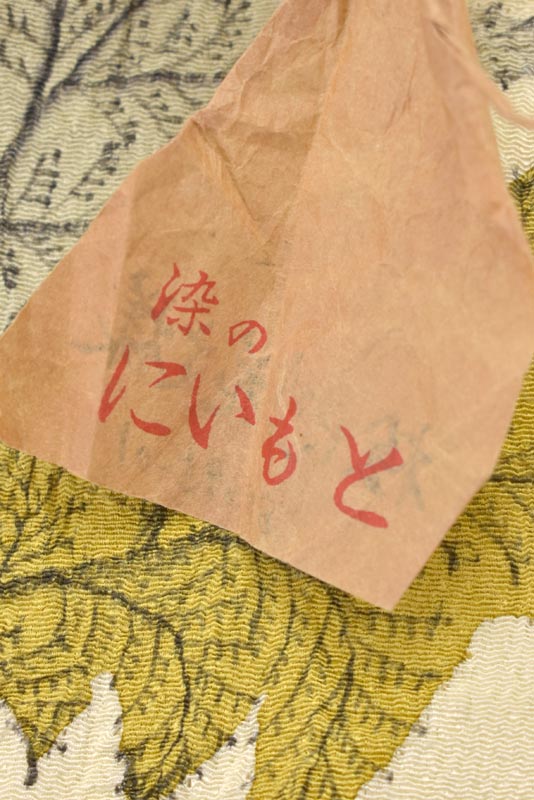 染の
にいもと